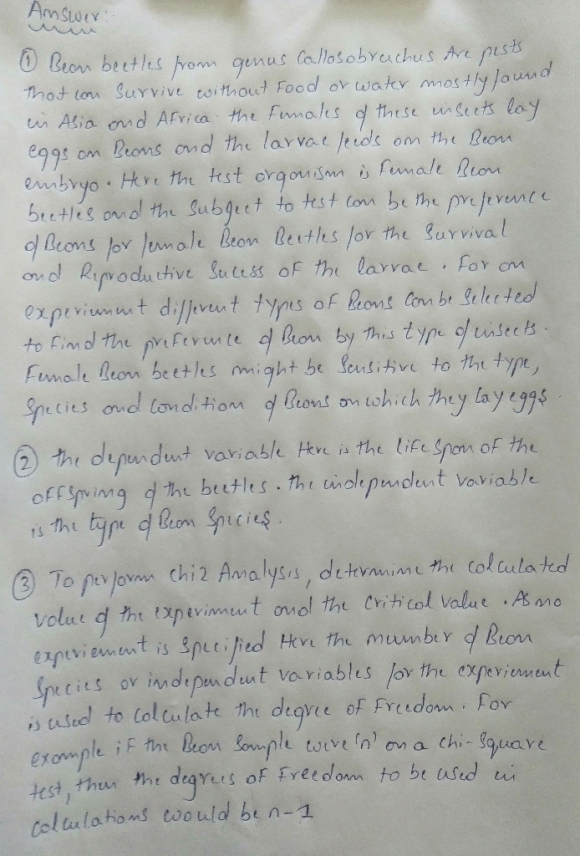 Answer:
① Bean beetles from genus Callosobruchus Are pests
That can Survive without Food or water mostly found
in Asia and Africa. the Females of these insects lay
eggs on Beans and the larvae feeds on the Bean
embryo. Here the test organism is Female Bean
beetles and the Subject to test can be the preference
of Beans for female Bean Beetles for the Survival
and Reproductive Sucess OF the larvae. For an
experiment different types of Beans can be Selected
to Find the preference of Bean by this type of insects.
Female Bean beetles might be Sensitive to the type,
Species and condition of Beans on which they lay eggs.
② the dependent variable Here is the life Span OF the
OFFSpring of the beetles. the independent variable
is the type of Bean Species.
③ To perform chi2 Analysis, determine the calculated
value of the experiment and the critical value. As no
experiement is Specified Here the number of Bean
Species or independent variables for the experiement
is used to calculate the degree of Freedom. For
example if the Bean Sample were 'n' on a chi-Square
test, then the degrees of Freedom to be used in
calculations would be n-1